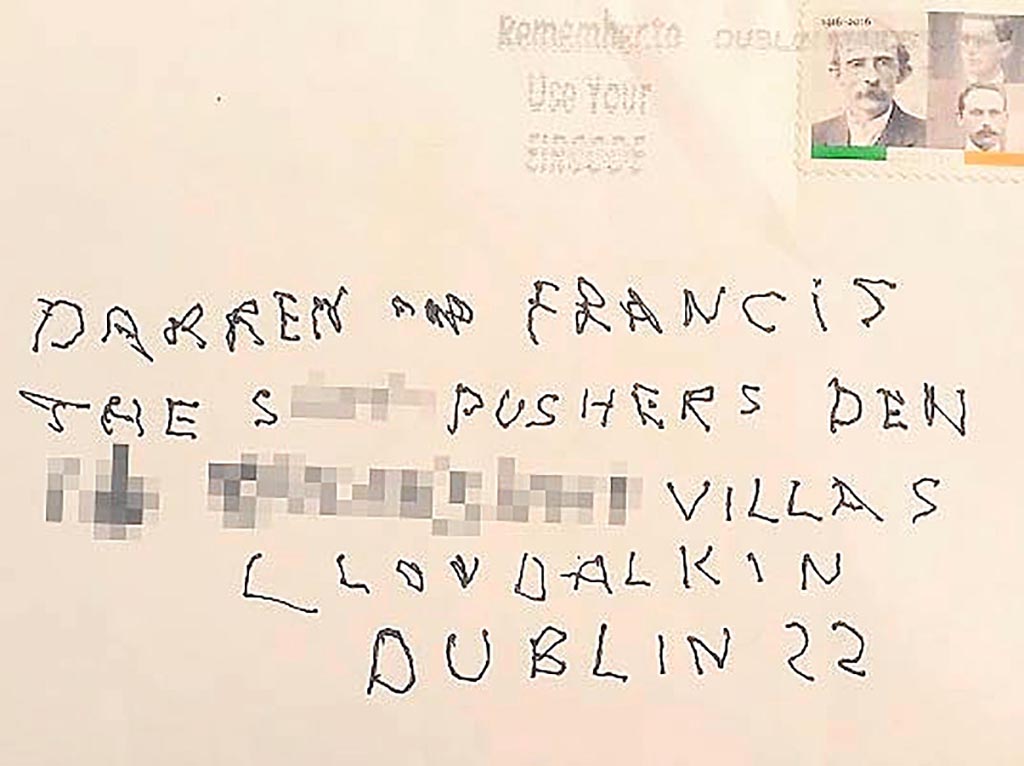 Remember to
Use Your
EIRCODE
DUBLIN
1916-2016
DARREN AND FRANCIS
THE S PUSHERS DEN
VILLAS
CLOVDALKIN
DUBLIN 22